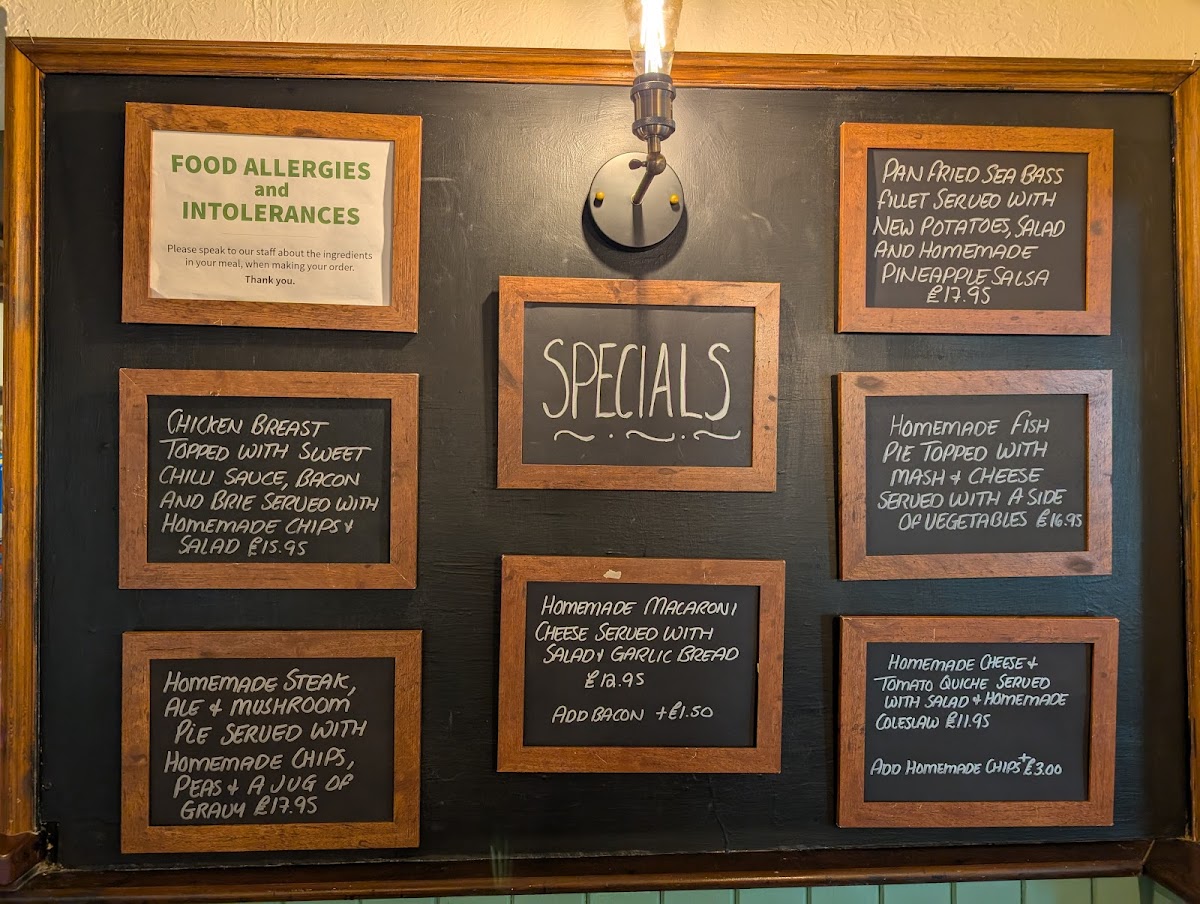 FOOD ALLERGIES
and
INTOLERANCES
Please speak to our staff about the ingredients
in your meal, when making your order.
Thank you.
CHICKEN BREAST
TOPPED WITH SWEET
CHILLI SAUCE, BACON
AND BRIE SERVED WITH
HOMEMADE CHIPS &
SALAD £15.95
HOMEMADE STEAK,
ALE & MUSHROOM
PIE SERVED WITH
HOMEMADE CHIPS,
PEAS & A JUG OF
GRAVY £17.95
SPECIALS
HOMEMADE MACARONI
CHEESE SERVED WITH
SALAD & GARLIC BREAD
£12.95
ADD BACON +£1.50
PAN FRIED SEA BASS
FILLET SERVED WITH
NEW POTATOES, SALAD
AND HOMEMADE
PINEAPPLE SALSA
£17.95
HOMEMADE FISH
PIE TOPPED WITH
MASH & CHEESE
SERVED WITH A SIDE
OF VEGETABLES £16.95
HOMEMADE CHEESE &
TOMATO QUICHE SERVED
WITH SALAD & HOMEMADE
COLESLAW £11.95
ADD HOMEMADE CHIPS +£3.00